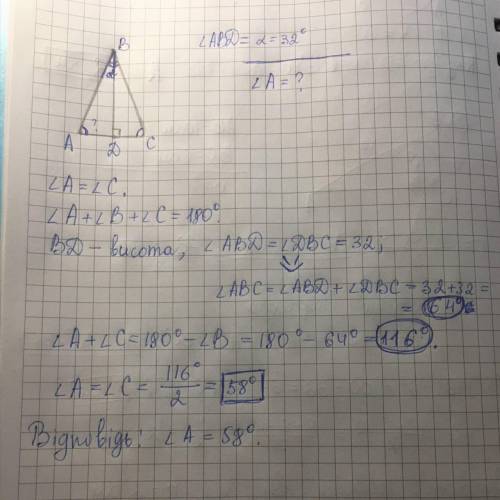 B
∠ABD = α = 32°
α
∠A = ?
A ? D C
∠A = ∠C.
∠A + ∠B + ∠C = 180°.
BD – висота, ∠ABD = ∠DBC = 32;
∠ABC = ∠ABD + ∠DBC = 32 + 32 =
= 64°
∠A + ∠C = 180° – ∠B = 180° – 64° = 116°.
∠A = ∠C = 116°/2 = 58°
Відповідь: ∠A = 58°.